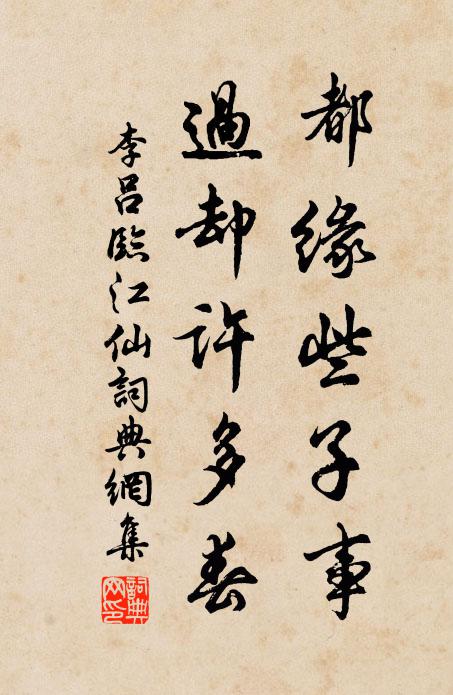 都緣些子事
過却許多春
李呂臨江仙詞典網集
詞典网印